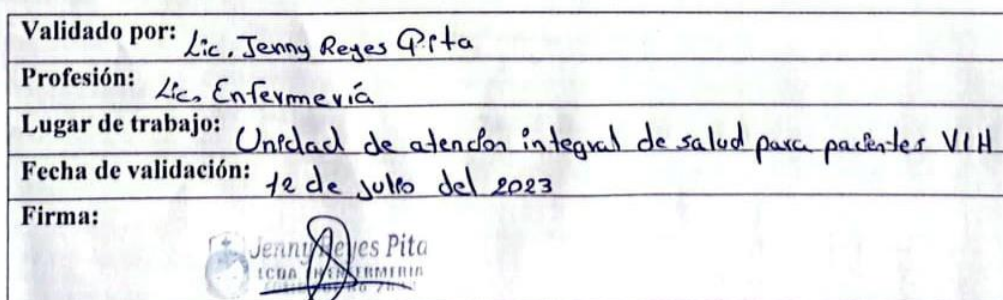 Validado por: Lic. Jenny Reyes Pita
Profesión: Lic. Enfermería
Lugar de trabajo: Unidad de atención integral de salud para pacientes VIH
Fecha de validación: 12 de julio del 2023
Firma:
Jenny Reyes Pita
LCDA